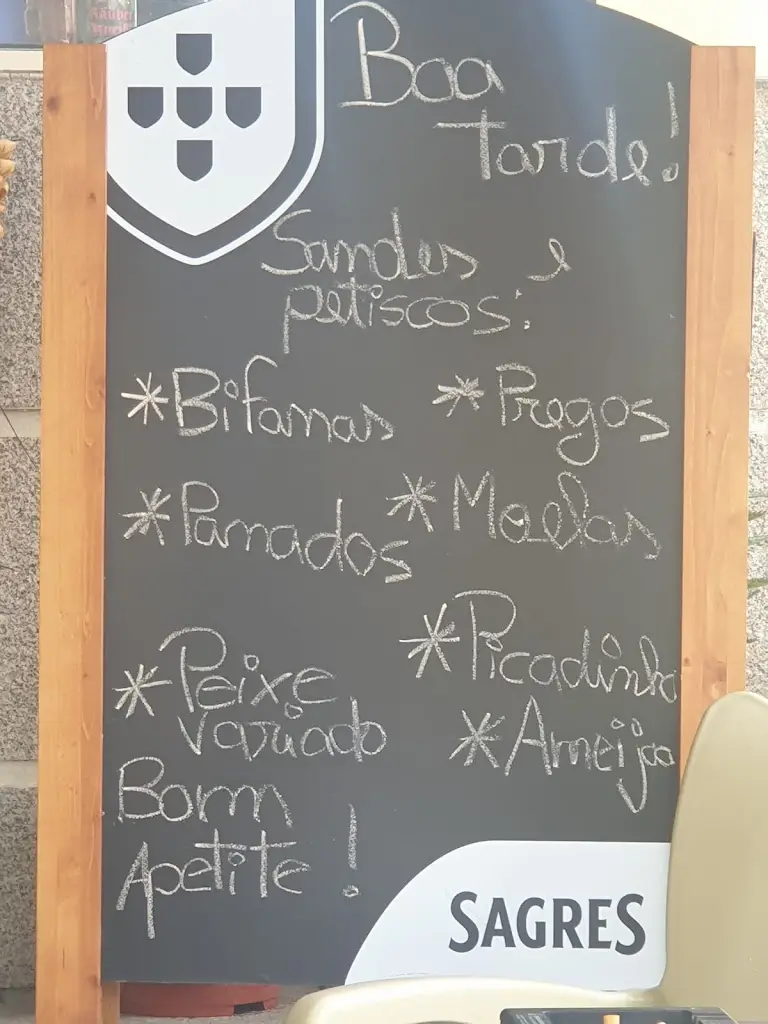 Boa
Tarde!
Sandes e
petiscos:
*Bifanas *Pregos
*Panados *Moelas
*Picadinho
*Peixe
variado *Ameijoa
Bom
Apetite!
SAGRES